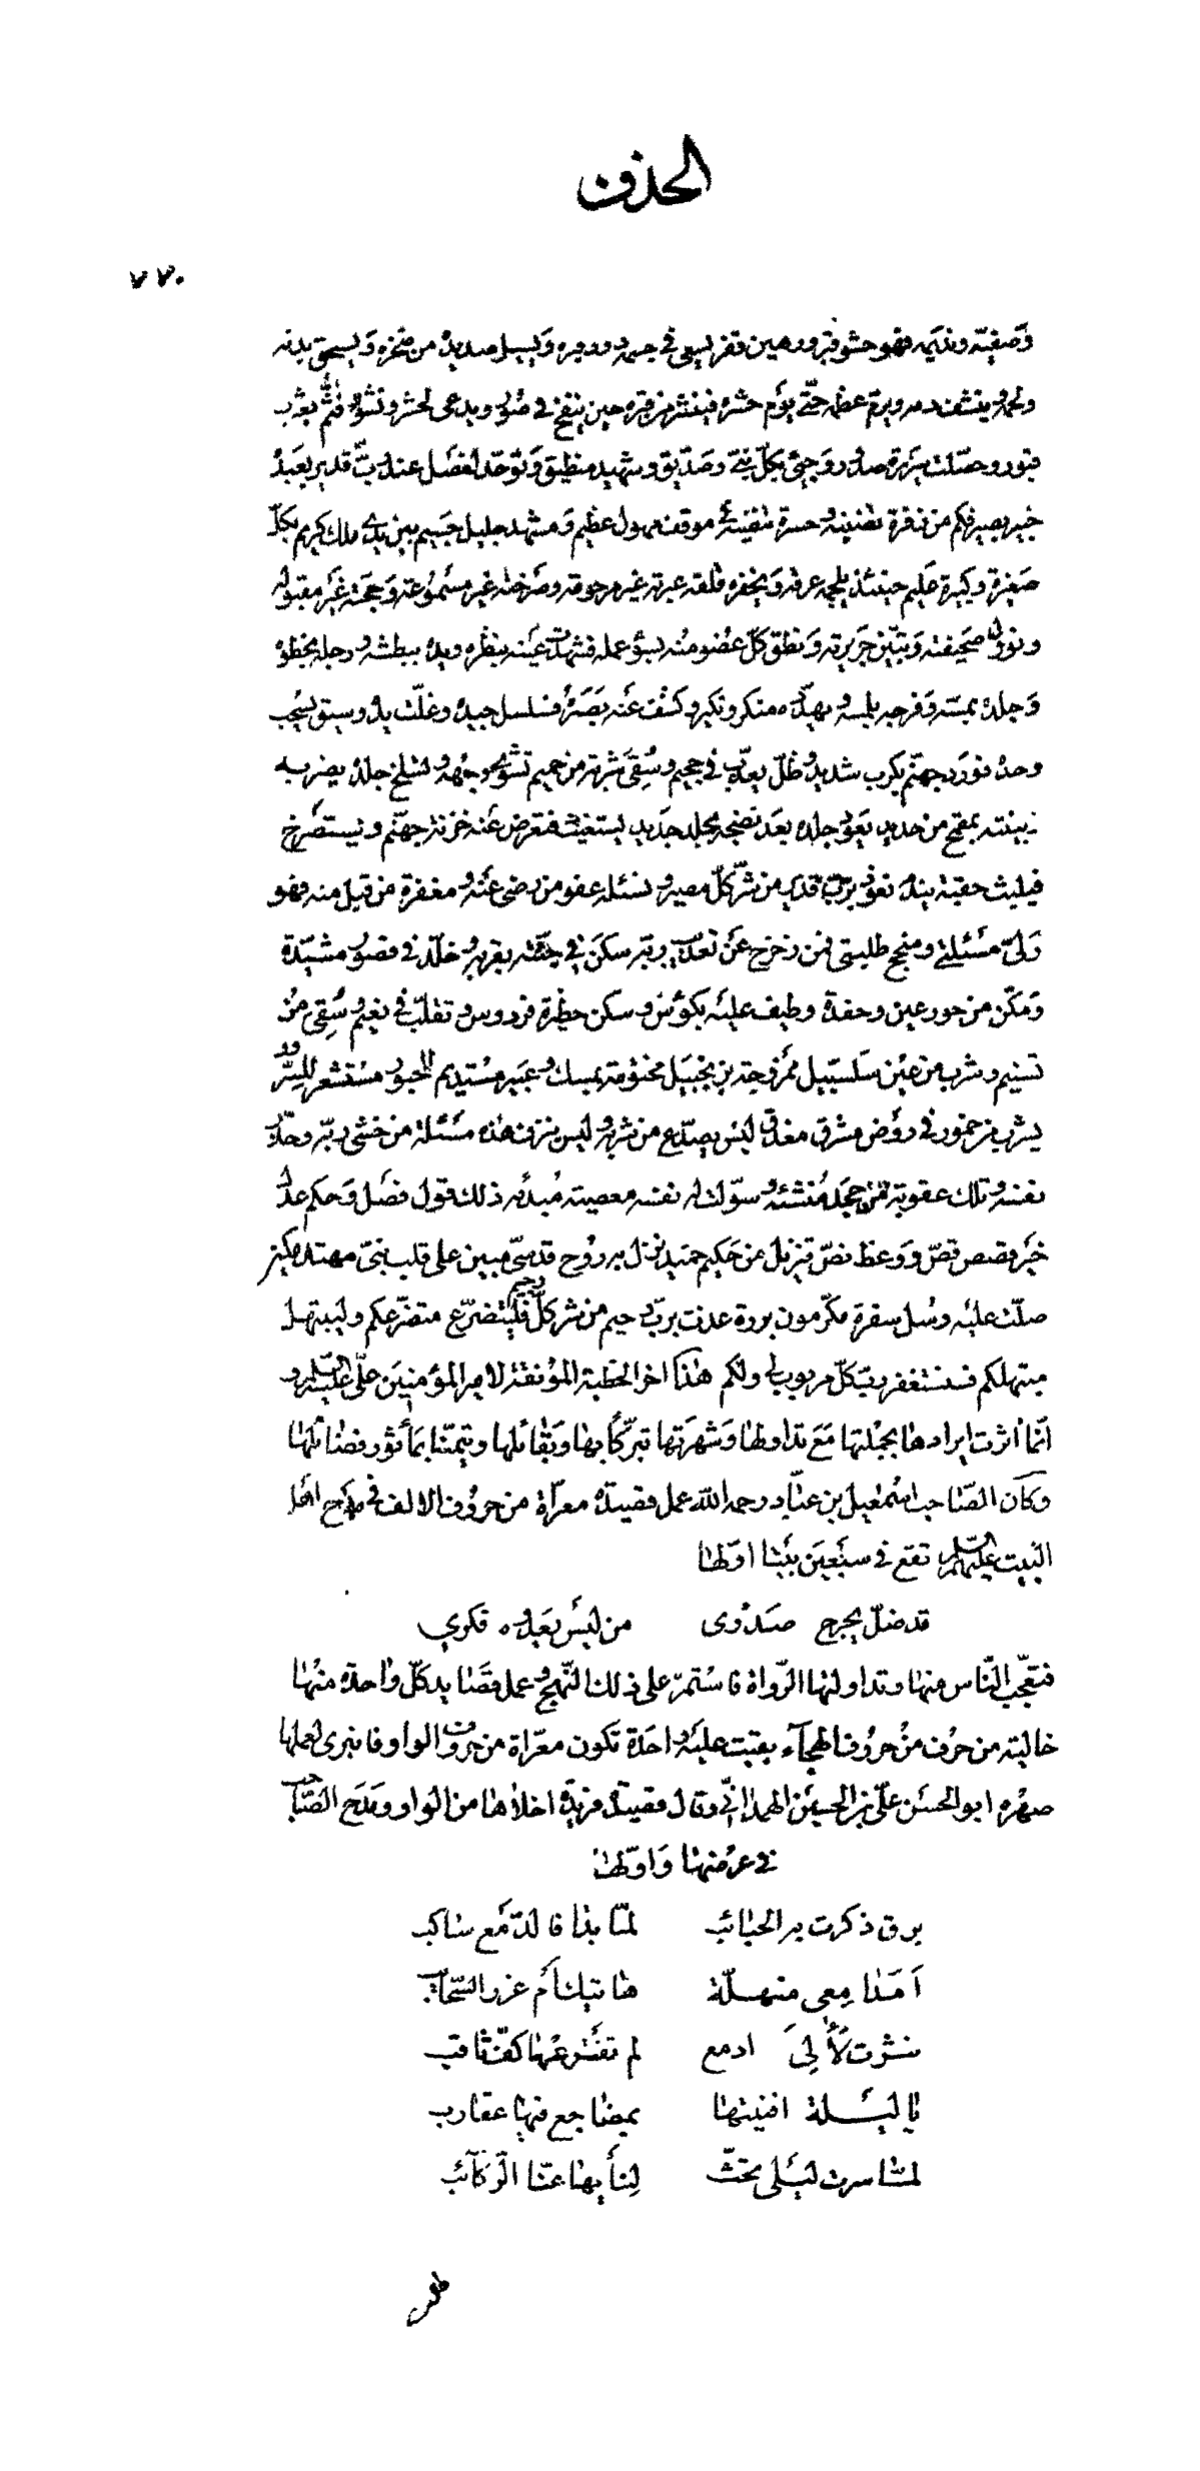 الحذف
٧٧٠
وصفيه ونديمه فهو حشو قبر ورهين قفر يسعى في جسمه دود قبره ويسيل صديده من منخره ويسحق بدنه
ولحمه وينشف دمه ويرم عظمه حتّى يوم حشره فينشر من قبره حين ينفخ في صور ويدعى لحشر ونشور فثمّ بعثرت
قبور وحصّلت سريرة صدور وجيئ بكلّ نبيّ وصدّيق وشهيد منطيق وتوحّد لفصل عند ربّ قدير بعبده
خبير بصير فكم من زفرة تضنيه وحسرة تنضيه في موقف مهول عظيم ومشهد جليل جسيم بين يدي ملك كريم بكلّ
صغيرة وكبيرة عليم حينئذ يلجمه عرقه ويحفزه قلقه عبرته غير مرحومة وصرخته غير مسموعة وحجّته غير مقبولة
وتؤول صحيفته وتبيّن جريرته ونطق كلّ عضو منه بسوء عمله فشهدت عينه بنظره ويده ببطشه ورجله بخطوه
وجلده بمسّه وفرجه بلمسه ويهدّده منكر ونكير وكشف عنه بصره فسلسل جيده وغلّت يده وسيق يسحب
وحده فورد جهنّم بكرب شديد وظلّ يعذّب في جحيم وسُقي شربة من حميم تشوي وجهه وتسلخ جلده يضربه
زبينته بمقمع من حديد يعود جلده بعد نضجه بجلد جديد يستغيث فتعرض عنه خزنة جهنّم ويستصرخ
فيلبث حقبة بندم نعوذ بربّ قدير من شرّ كلّ مصير ونسئله عفو من رضى عنه ومغفرة من قبل منه فهو
وليّ مسئلتي ومنجح طلبتي فمن زحزح عن تعذيب ربّه سكن في جنّته بقربه وخلّد في قصور مشيّدة
ومكّن من حور عين وحفدة وطيف عليه بكؤس وسكن حظيرة فردوس وتقلّب في نعيم وسُقي من
تسنيم وشرب من عين سلسبيل ممزوجة بزنجبيل مختومة بمسك وعبير مستديم للحبور مستشعر للسرور
يشرب من خمور في روض مشرق مغدق ليس يصدّع من شربه وليس ينزف هذه مسئلة من خشي ربّه وحذّر
نفسه وتلك عقوبة من جحد منشئه وسوّلت له نفسه معصية مبدئه ذلك قول فصل وحكم عدل
خير قصص قصّ ووعظ نصّ تنزيل من حكيم حميد نزل به روح قدس مبين على قلب نبيّ مهتد مكين
صلّت عليه رسل سفرة مكرّمون بررة عذت بربّ رحيم من شر كلّ رجيم فليتضرّع متضرّعكم وليبتهل
مبتهلكم فنستغفر ربّ كلّ مربوب لي ولكم هذا اخر الخطبة المؤنقة لامير المؤمنين عليّ عليه السلام و
انّما اثرت ايرادها بجملتها مع تداولها وشهرتها تبرّكاً بها وبقائلها وتيمّنا بمأثور فضائلها
وكان الصّاحب اسمعيل بن عبّاد رحمه الله عمل قصيدة معرّاة من حروف الالف في مدح اهل
البيت عليهم السلام تقع في سبعين بيتا اوّلها
قد ضلّ يجرح صدري من ليس يعدوه فكري
فتعجّب النّاس منها وتداولتها الرّواة فاستمرّ على ذلك النّهج وعمل قصايد كلّ واحدة منها
خالية من حرف من حروف الهجآء بقيت عليه واحدة تكون معرّاة من حروف الواو فانبرى لعملها
صهره ابو الحسن عليّ بن الحسين الهمداني وقال قصيدة فريدة اخلاها من الواو ومدح الصّاحب
في عرضها واوّلها
برق ذكرت به الحبائب لمّا بدا فالدّمع ساكب
اَمدامعي منهلّة هاتيك أم غزر السّحائب
نثرت لألئ ادمع لم تفترعها كفّ ثاقب
يا ليلة افنيتها بمضاجع فيها عقارب
لمّا سرت ليلى تخبّ لنأيها عنّا الرّكآئب